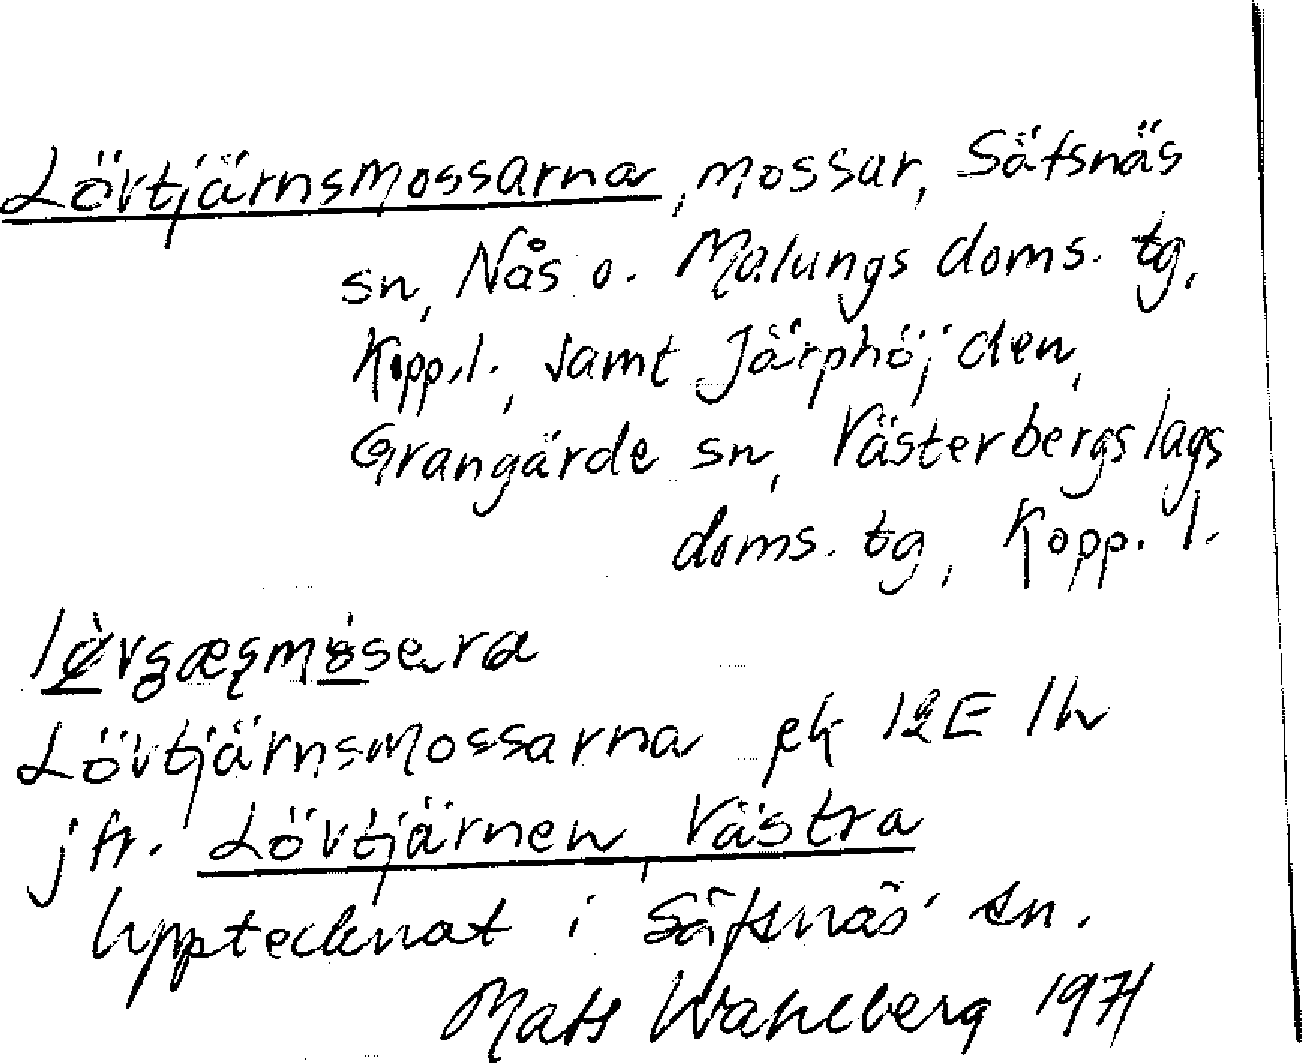 Lövtjärnsmossarna, mossar, Säfsnäs
sn, Nås o. Malungs doms. tg,
Kopp.l., samt Järphöjden,
Grangärde sn, Västerbergslags
doms. tg, Kopp. l.
Lövtjärnsmossarna ek 12E 1h
jfr. Lövtjärnen, Västra
Upptecknat i Säfsnäs sn.
Mats Wahlberg 1971